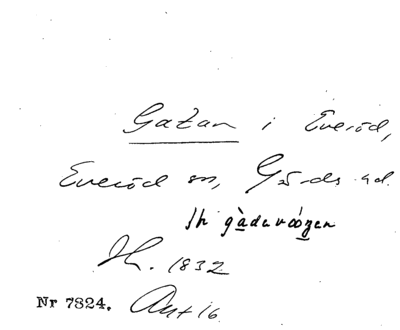 Gatan i Everöd,
Everöd sn, Gärds hd.
Ih gàdavǻgen
Jh. 1832
Nr 7824. Ant 16